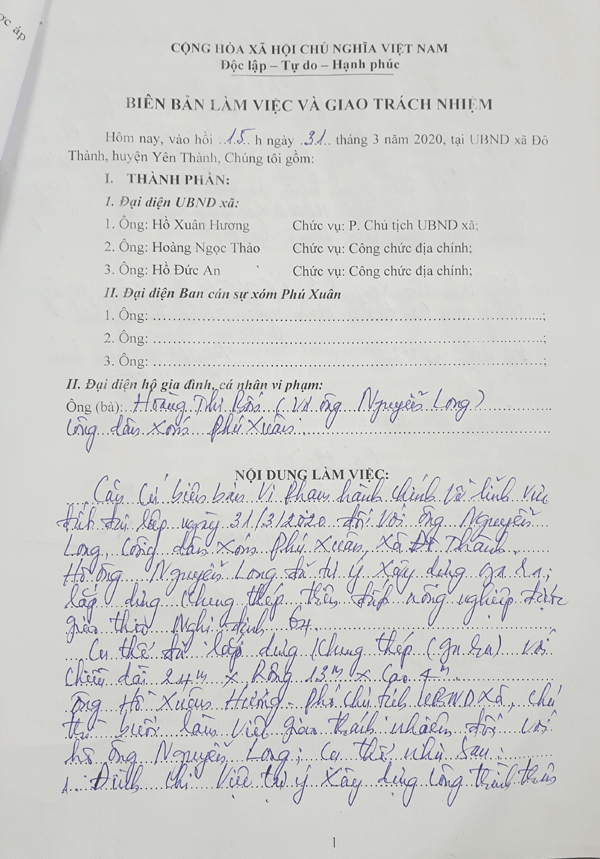 ọc áp
CỘNG HÒA XÃ HỘI CHỦ NGHĨA VIỆT NAM
Độc lập – Tự do – Hạnh phúc
BIÊN BẢN LÀM VIỆC VÀ GIAO TRÁCH NHIỆM
Hôm nay, vào hồi 15 h ngày 31 tháng 3 năm 2020, tại UBND xã Đô
Thành, huyện Yên Thành, Chúng tôi gồm:
I. THÀNH PHẦN:
I. Đại diện UBND xã:
1. Ông: Hồ Xuân Hương Chức vụ: P. Chủ tịch UBND xã;
2. Ông: Hoàng Ngọc Thảo Chức vụ: Công chức địa chính;
3. Ông: Hồ Đức An Chức vụ: Công chức địa chính;
II. Đại diện Ban cán sự xóm Phú Xuân
1. Ông: ……………………;
2. Ông: ……………………;
3. Ông: ……………………;
II. Đại diện hộ gia đình, cá nhân vi phạm:
Ông (bà): Hoàng Thị (Vợ ông Nguyễn Long)
Công dân xóm Phú Xuân.
NỘI DUNG LÀM VIỆC:
Căn cứ biên bản vi phạm hành chính về lĩnh vực
đất đai lập ngày 31/3/2020 đối với ông Nguyễn
Long, công dân xóm Phú Xuân, xã Đô Thành.
Hộ ông Nguyễn Long đã tự ý xây dựng ga ra;
lắp dựng khung thép trên đất nông nghiệp được
giao theo Nghị định 64
Cụ thể đã lắp dựng khung thép (ga ra) với
chiều dài 24m x Rộng 13m x cao 4m
Ông Hồ Xuân Hương - Phó chủ tịch UBND xã, chủ
trì buổi làm việc giao trách nhiệm đối với
hộ ông Nguyễn Long; cụ thể như sau:
1. Đình chỉ việc tự ý xây dựng công trình trên
1